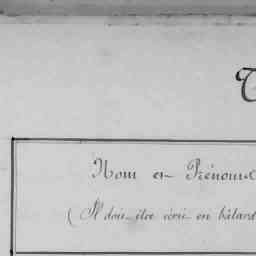 Nom et Prénoms
( Il doit être écrit en bâtard